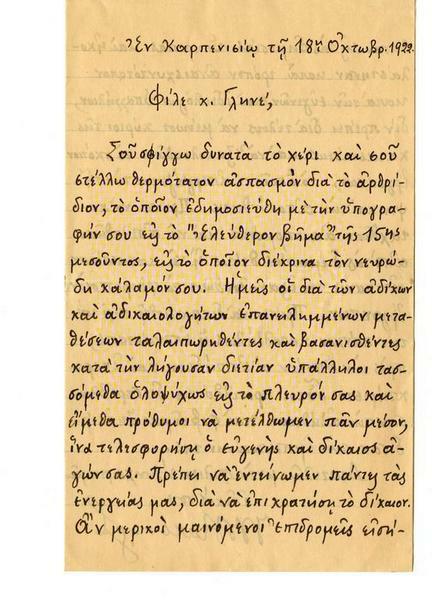 Ἐν Καρπενισίῳ τῇ 18ῃ Ὀκτωβρ. 1922.
Φίλε κ. Γληνέ,
Σοῦ σφίγγω δυνατὰ τὸ χέρι καὶ σοῦ
στέλλω θερμότατον ἀσπασμὸν διὰ τὸ ἀρθρί-
διον, τὸ ὁποῖον ἐδημοσιεύθη μὲ τὴν ὑπογρα-
φήν σου εἰς τὸ "Ἐλεύθερον Βῆμα" τῆς 15ης
μεσοῦντος, εἰς τὸ ὁποῖον διέκρινα τὸν νευρώ-
δη κάλαμόν σου. Ἡμεῖς οἱ διὰ τῶν ἀδίκων
καὶ ἀδικαιολογήτων ἐπανειλημμένων μετα-
θέσεων ταλαιπωρηθέντες καὶ βασανισθέντες
κατὰ τὴν λήγουσαν διετίαν ὑπάλληλοι τασ-
σόμεθα ὁλοψύχως εἰς τὸ πλευρόν σας καὶ
εἴμεθα πρόθυμοι νὰ μετέλθωμεν πᾶν μέσον,
ἵνα τελεσφορήσῃ ὁ εὐγενὴς καὶ δίκαιος ἀ-
γών σας. Πρέπει νὰ ἐντείνωμεν πάντες τὰς
ἐνεργείας μας, διὰ νὰ ἐπικρατήσῃ τὸ δίκαιον.
Ἂν μερικοὶ μαινόμενοι ἐπιδρομεῖς εἰσή-